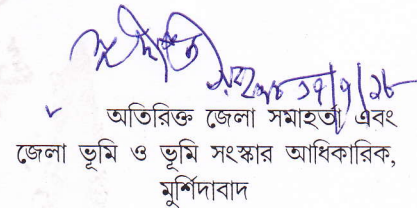 অতিরিক্ত জেলা সমাহর্তা এবং
জেলা ভূমি ও ভূমি সংস্কার আধিকারিক,
মুর্শিদাবাদ